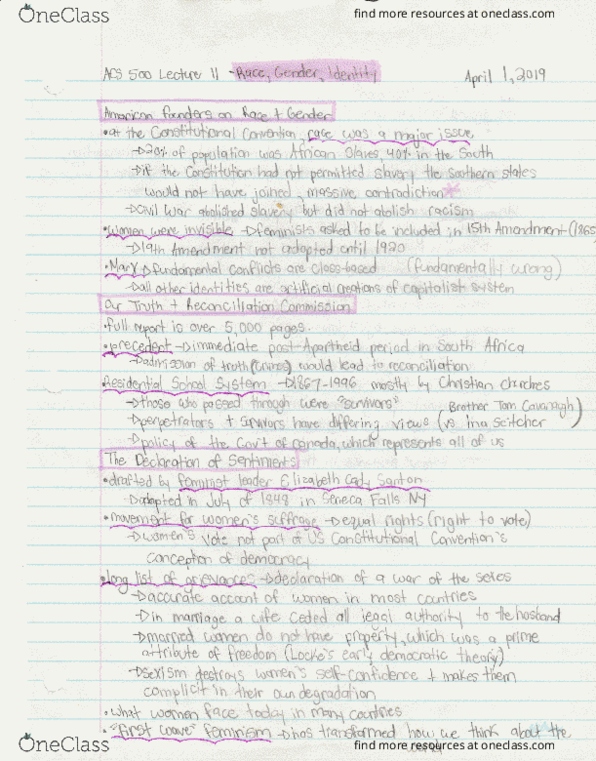 OneClass
find more resources at oneclass.com
ACS 500 Lecture 11 - Race, Gender, Identity April 1, 2019
American Founders on Race + Gender
• at the Constitutional Convention, race was a major issue
→ 20% of population was African Slaves, 40% in the South
→ if the Constitution had not permitted slavery the southern states
would not have joined, massive contradiction *
→ Civil War abolished slavery but did not abolish racism
• Women were invisible → feminists asked to be included in 15th Amendment (1865)
→ 19th Amendment not adopted until 1920
• Marx → fundamental conflicts are class-based (fundamentally wrong)
→ all other identities are artificial creations of capitalist system
Our Truth + Reconciliation Commission
• full report is over 5,000 pages
• precedent → immediate post-Apartheid period in South Africa
→ admission of truth (crimes) would lead to reconciliation
• Residential School System → 1867-1996 mostly by Christian churches
→ those who passed through were "survivors"
→ perpetrators + survivors have differing views (Brother Tom Cavanagh vs Ina Seitcher)
→ policy of the Gov't of Canada, which represents all of us
The Declaration of Sentiments
• drafted by feminist leader Elizabeth Cady Santon
→ adopted in July of 1848 in Seneca Falls NY
• movement for women's suffrage → equal rights (right to vote)
→ women's vote not part of US Constitutional Convention's
conception of democracy
• long list of grievances → declaration of a war of the sexes
→ accurate account of women in most countries
→ in marriage a wife ceded all legal authority to the husband
→ married women do not have property, which was a prime
attribute of freedom (Locke's early democratic theory)
→ sexism destroys women's self-confidence + makes them
complicit in their own degradation
• what women face today in many countries
• "first wave" feminism → has transformed how we think about the
OneClass
find more resources at oneclass.com